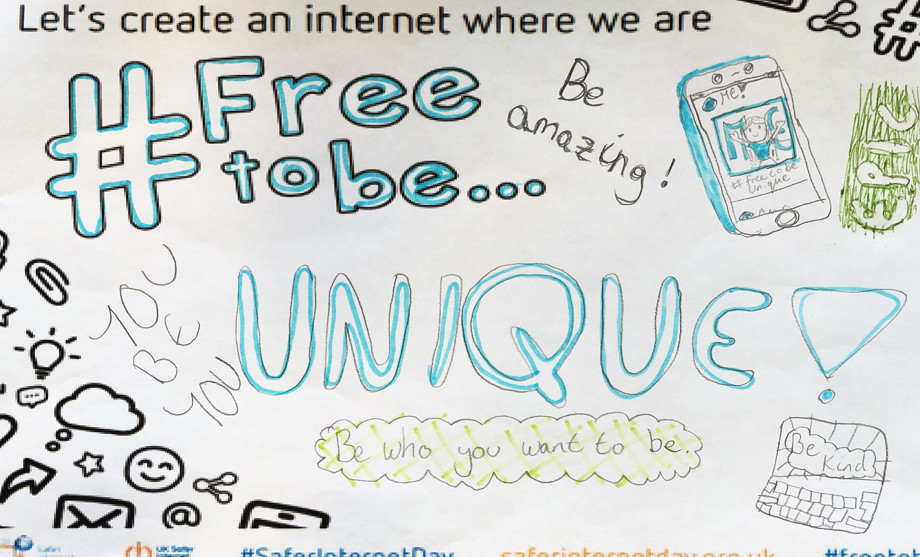 Let's create an internet where we are
#Free
to be...
Be
amazing!
ME!
# free to be
Unique
YOU
BE
YOU
UNIQUE!
Be who you want to be.
Be
Kind
@
UK Safer
Internet
#SaferInternetDay
saferinternetday.org.uk